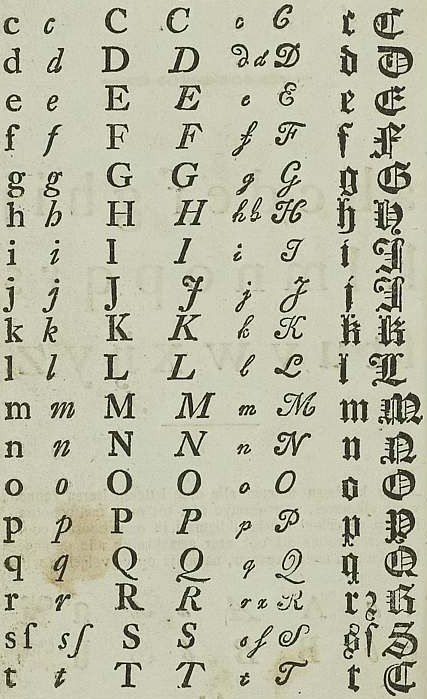 c c C C c C c C
d d D D d d D d D
e e E E e E e E
f f F F f F f F
g g G G g G g G
h h H H h h H h H
i i I I i I i I
j j J J j J j J
k k K K k K k K
l l L L l L l L
m m M M m M m M
n n N N n N n N
o o O O o O o O
p p P P p P p P
q q Q Q q Q q Q
r r R R r r R r ꝛ R
sſ sſ S S s ſ S s ſ S
t t T T t T t T